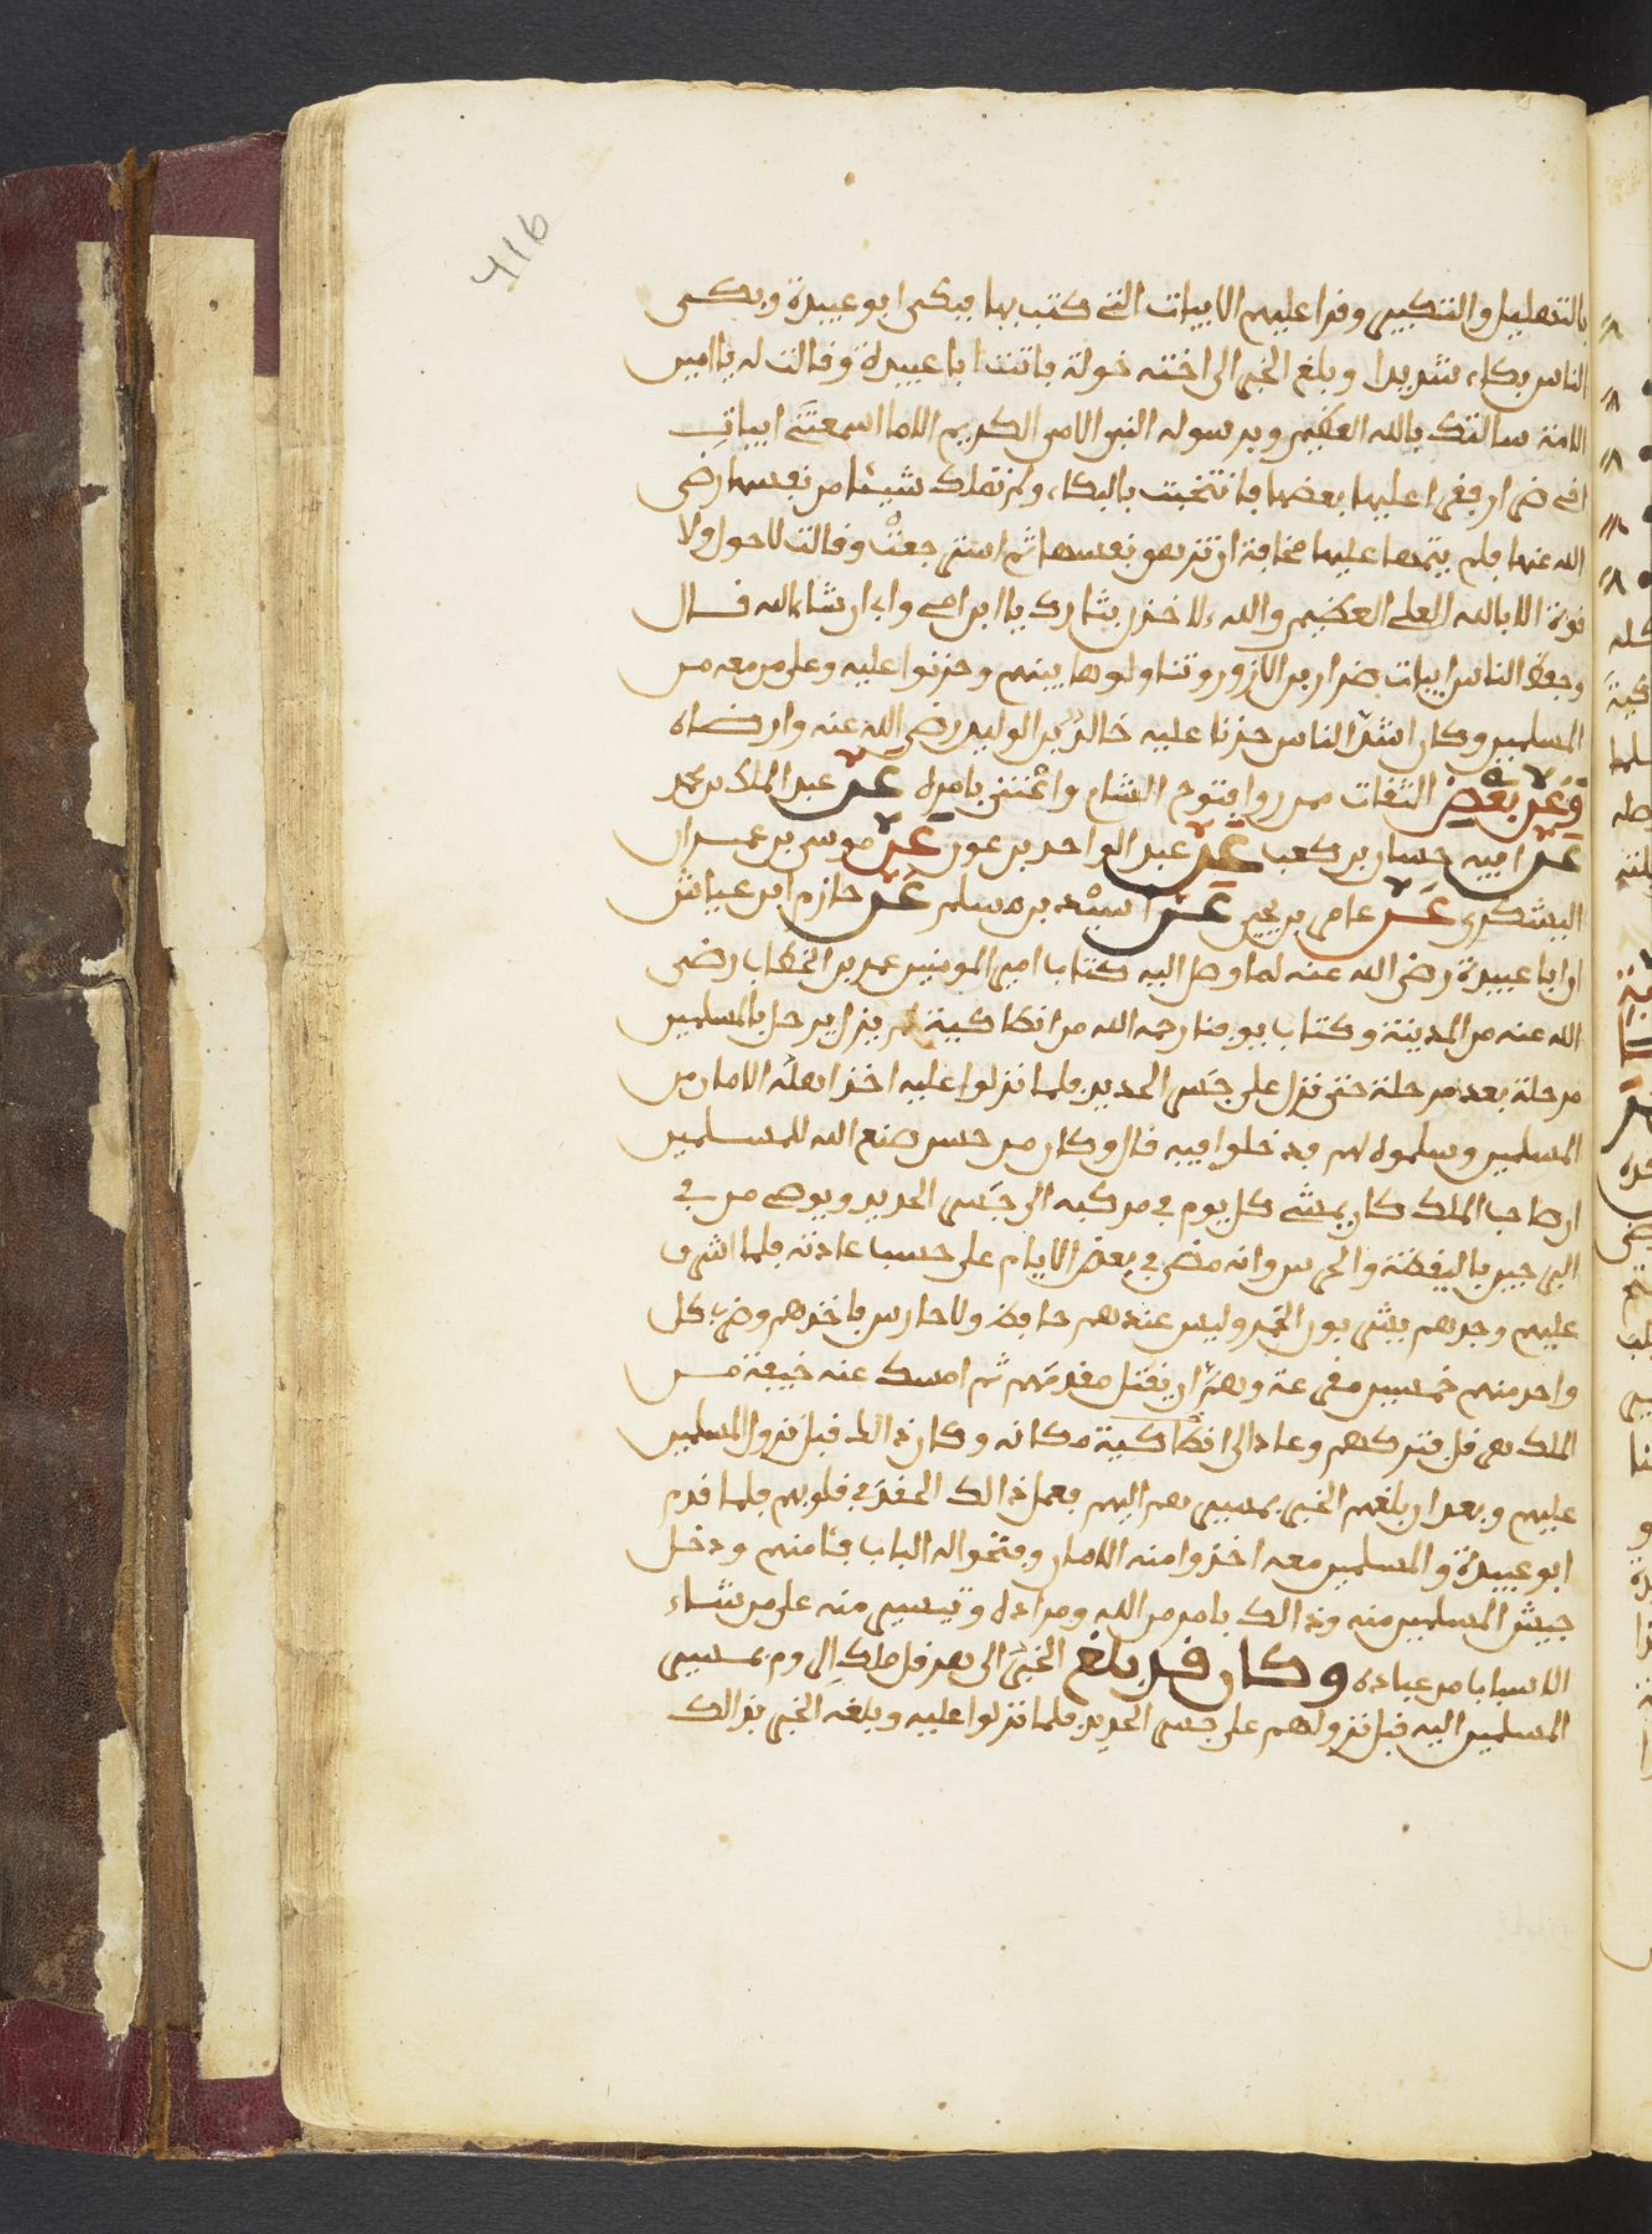 41b
بالتهليل والتكبير وقرا عليهم الابيات التي كتب بها فبكى ابو عبيدة وبكى
الناس بكاء شديدا وبلغ الخبر الى اخته خولة فاتت ابا عبيدة وقالت له يا امين
الامة سالتك بالله العظيم وبرسوله النبي الامي الكريم الا ما اسمعتني ابيات
اخي ضرار فقرا عليها بعضها فانتحبت بالبكاء ولم تملك شيئا من نفسها رضي
الله عنها فلم يتمها عليها مخافة ان تزهق نفسها ثم استرجعت وقالت لا حول ولا
قوة الا بالله العلي العظيم والله لاخذن بثارك يا ابن امي وابي ان شاء الله قال
وحفظ الناس ابيات ضرار بن الازور وتناولوها بينهم وحزنوا عليه وعلى من معه من
المسلمين وكان اشد الناس حزنا عليه خالد بن الوليد رضي الله عنه وارضاه
وعن بعض الثقات ممن روا فتوح الشام واعتنى بامره عن عبد الملك بن محمد
عن ابيه حسان بن كعب عن عبد الواحد بن عون عن موسى بن عمران
اليشكري عن عامر بن يحيى عن اسيد بن مسلم عن حازم ابن عياش
ان ابا عبيدة رضي الله عنه لما وصل اليه كتاب امير المومنين عمر بن الخطاب رضي
الله عنه من المدينة وكتاب يوفنا رحمه الله من انطاكية لم يزل يرحل بالمسلمين
مرحلة بعد مرحلة حتى نزل على جسر الحديد فلما نزلوا عليه اخذ اهله الامان من
المسلمين وسلموه لهم فدخلوا فيه قال وكان من حسن صنع الله للمسلمين
ان صاحب الملك كان يمشي كل يوم في مركبه الى جسر الحديد ويوصي من في
البرجين باليقظة والحرس وانه مضى في بعض الايام على حسب عادته فلما اشرف
عليهم وجدهم يشربون الخمر وليس عندهم حافظ ولا حارس فاخذهم وضرب كل
واحد منهم خمسين مقرعة وهم ان يقتل مقدمهم ثم امسك عنه خيفة من
الملك هرقل فتركهم وعاد الى انطاكية مكانه وكان ذالك قبل نزول المسلمين
عليهم وبعد ان بلغهم الخبر بمسيرهم اليهم فعمل ذالك الحقد في قلوبهم فلما قدم
ابو عبيدة والمسلمين معه اخذوا منه الامان وفتحوا له الباب فئامنهم ودخل
جيش المسلمين منه وذالك بامر من الله ومراده وتيسير منه على من شاء
الاسباب من عباده وكان قد بلغ الخبر الى هرقل ملك الروم بمسير
المسلمين اليه قبل نزولهم على جسر الحديد فلما نزلوا عليه وبلغه الخبر بذالك